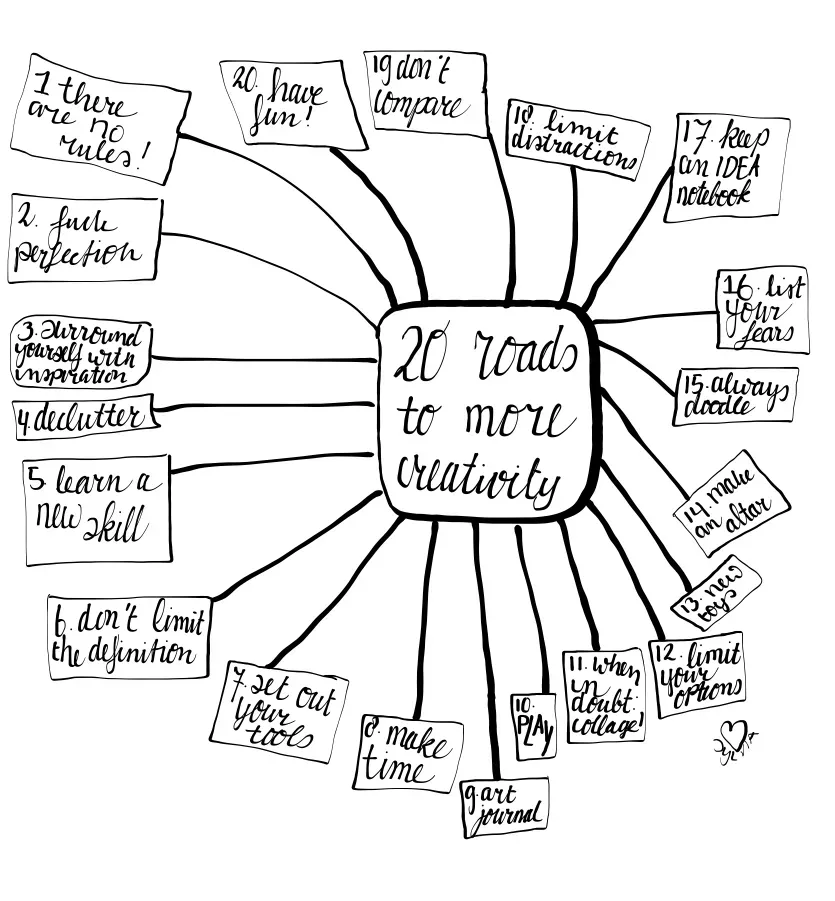 20 roads
to more
creativity
1 there
are no
rules!
2. fuck
perfection
3. surround
yourself with
inspiration
4 declutter
5 learn a
new skill
6. don't limit
the definition
7. set out
your
tools
8. make
time
9. art
journal
10.
PLAy
11. when
in
doubt:
collage!
12. limit
your
options
13. new
toys
14. make
an altar
15. always
doodle
16. list
your
fears
17. keep
an IDEA
notebook
18. limit
distractions
19 don't
compare
20. have
fun!